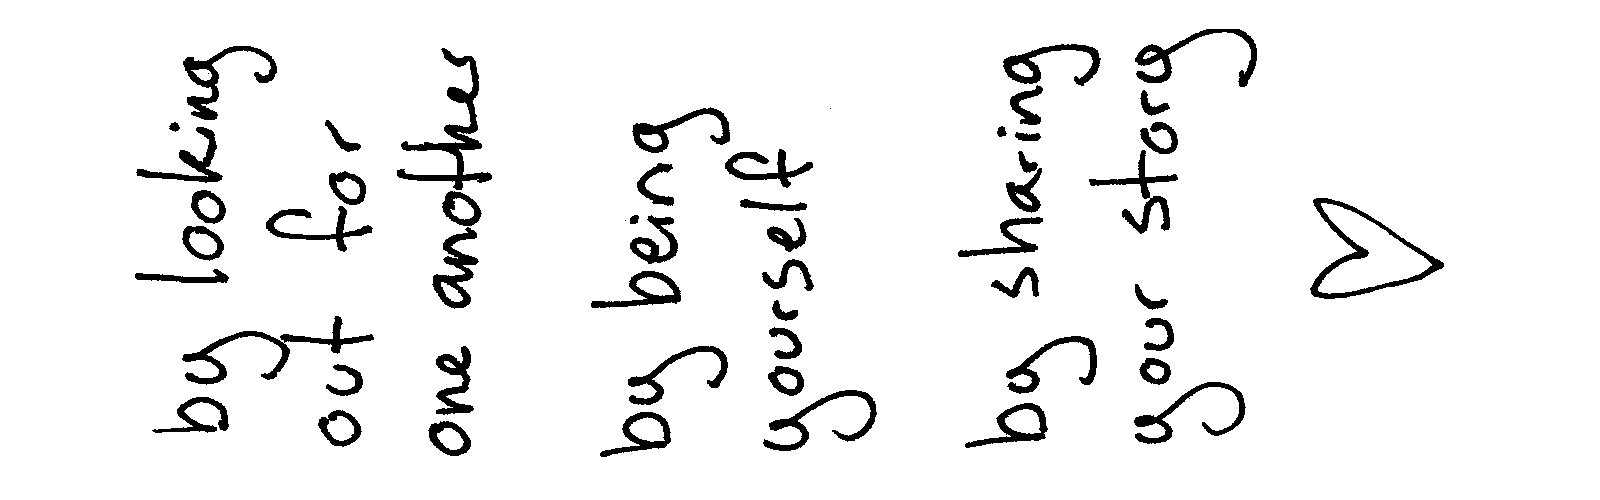 by looking
out for
one another
by being
yourself
by sharing
your story